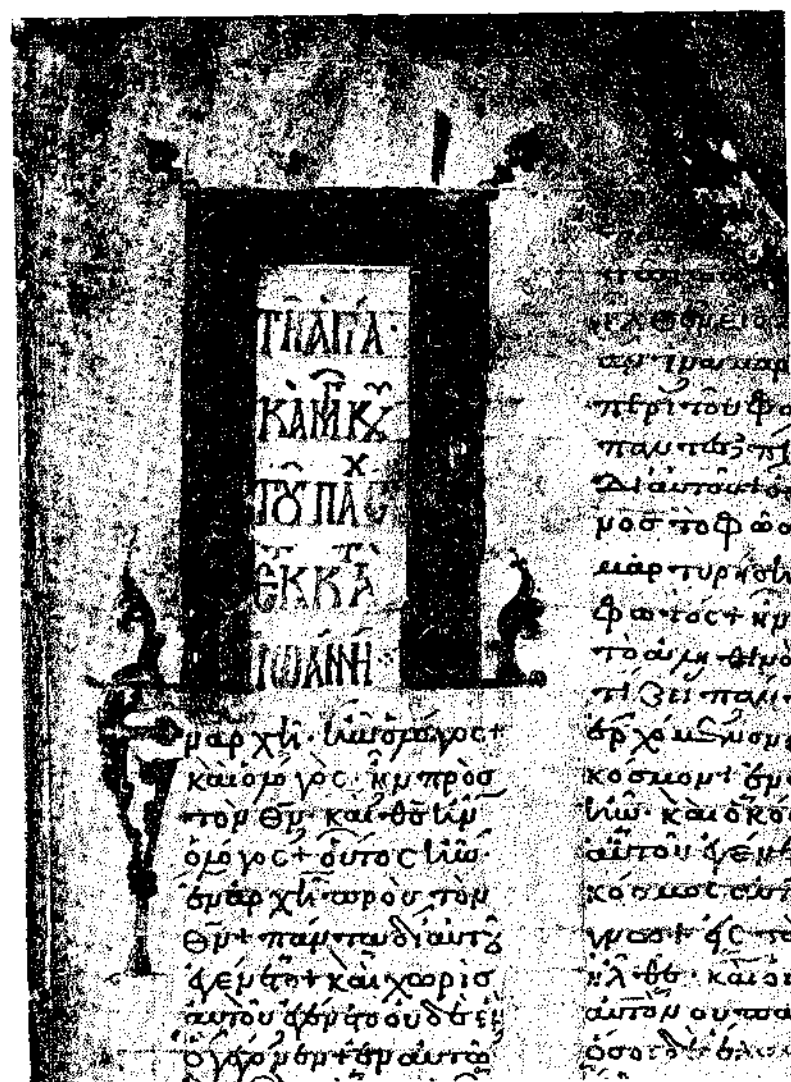 ΤῊ ἉΓΊΑ·
ΚᾺΙ Μ ΚΥ
ΤΟΥ͂ ΠΆΣΧ
ἘΚ Κ ΤᾺ
ἸΩΆΝΝΗ
ν ἀρχῆι· ἦν ὁ λόγος +
καὶ ὁ λόγος· ἦν πρὸσ
τὸν θν· καὶ θσ ἦν
ὁ λόγος + οὗτος ἦν
ἐν ἀρχῆι πρὸς τὸν
θν + πάντα δι αὐτοῦ
ἐγένετο + καὶ χωρὶσ
αὐτοῦ ἐγένετο οὐδὲ ἕν
ὃ γέγονεν + ἐν αὐτῶ
περὶ τοῦ φω
πάντες πι
δι αὐτοῦ + ο
μοσ τὸ φῶσ
μαρτυρήση
φωτός + ἦν
τὸ ἀληθινὸ
τίζει παν
ἐρχόμενον
κόσμον + ἐν
ἦν· καὶ ὁ κό
αὐτοῦ ἐγέν
κόσμος αὐτ
γνω + εἰς τὰ
ἦλθε· καὶ οἱ
αὐτὸν οὐ πα
ὅσοι δὲ ἔλα